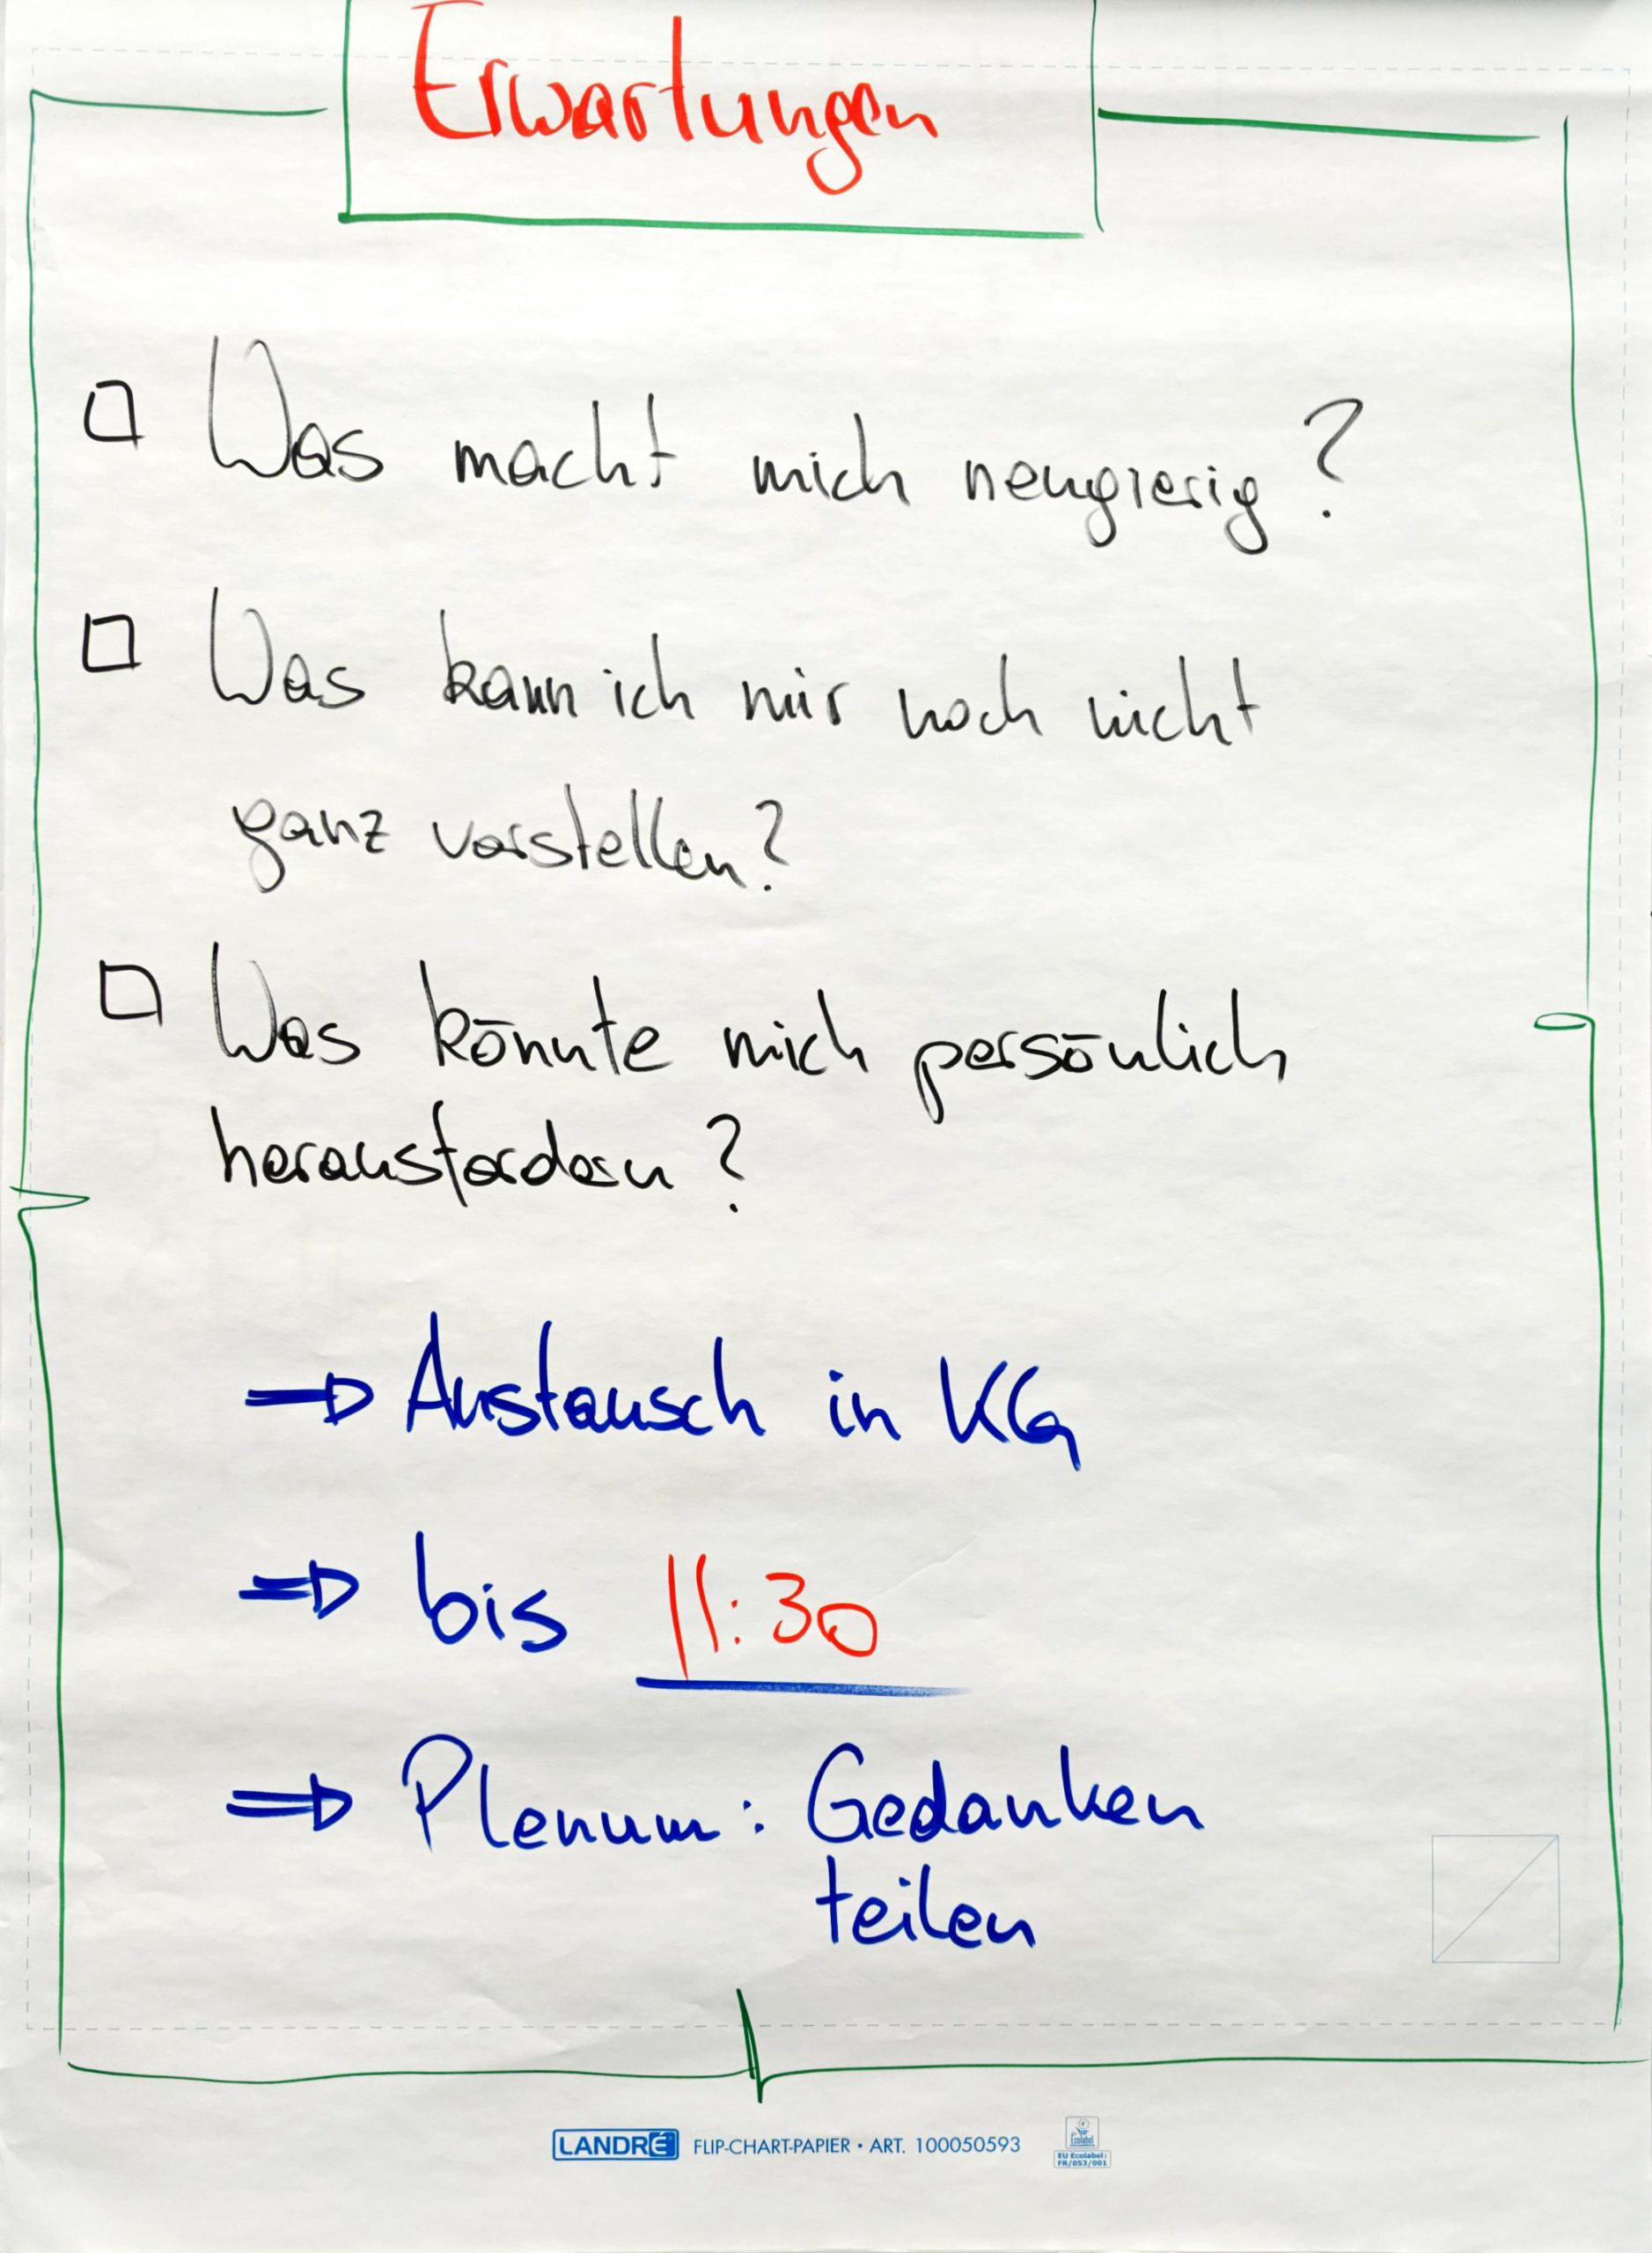 Erwartungen
Was macht mich neugierig?
Was kann ich mir noch nicht
ganz vorstellen?
Was könnte mich persönlich
herausfordern?
⇒ Austausch in KG
⇒ bis 11:30
⇒ Plenum: Gedanken
teilen
LANDRÉ FLIP-CHART-PAPIER • ART. 100050593
Ecolabel
EU Ecolabel:
FR/053/001